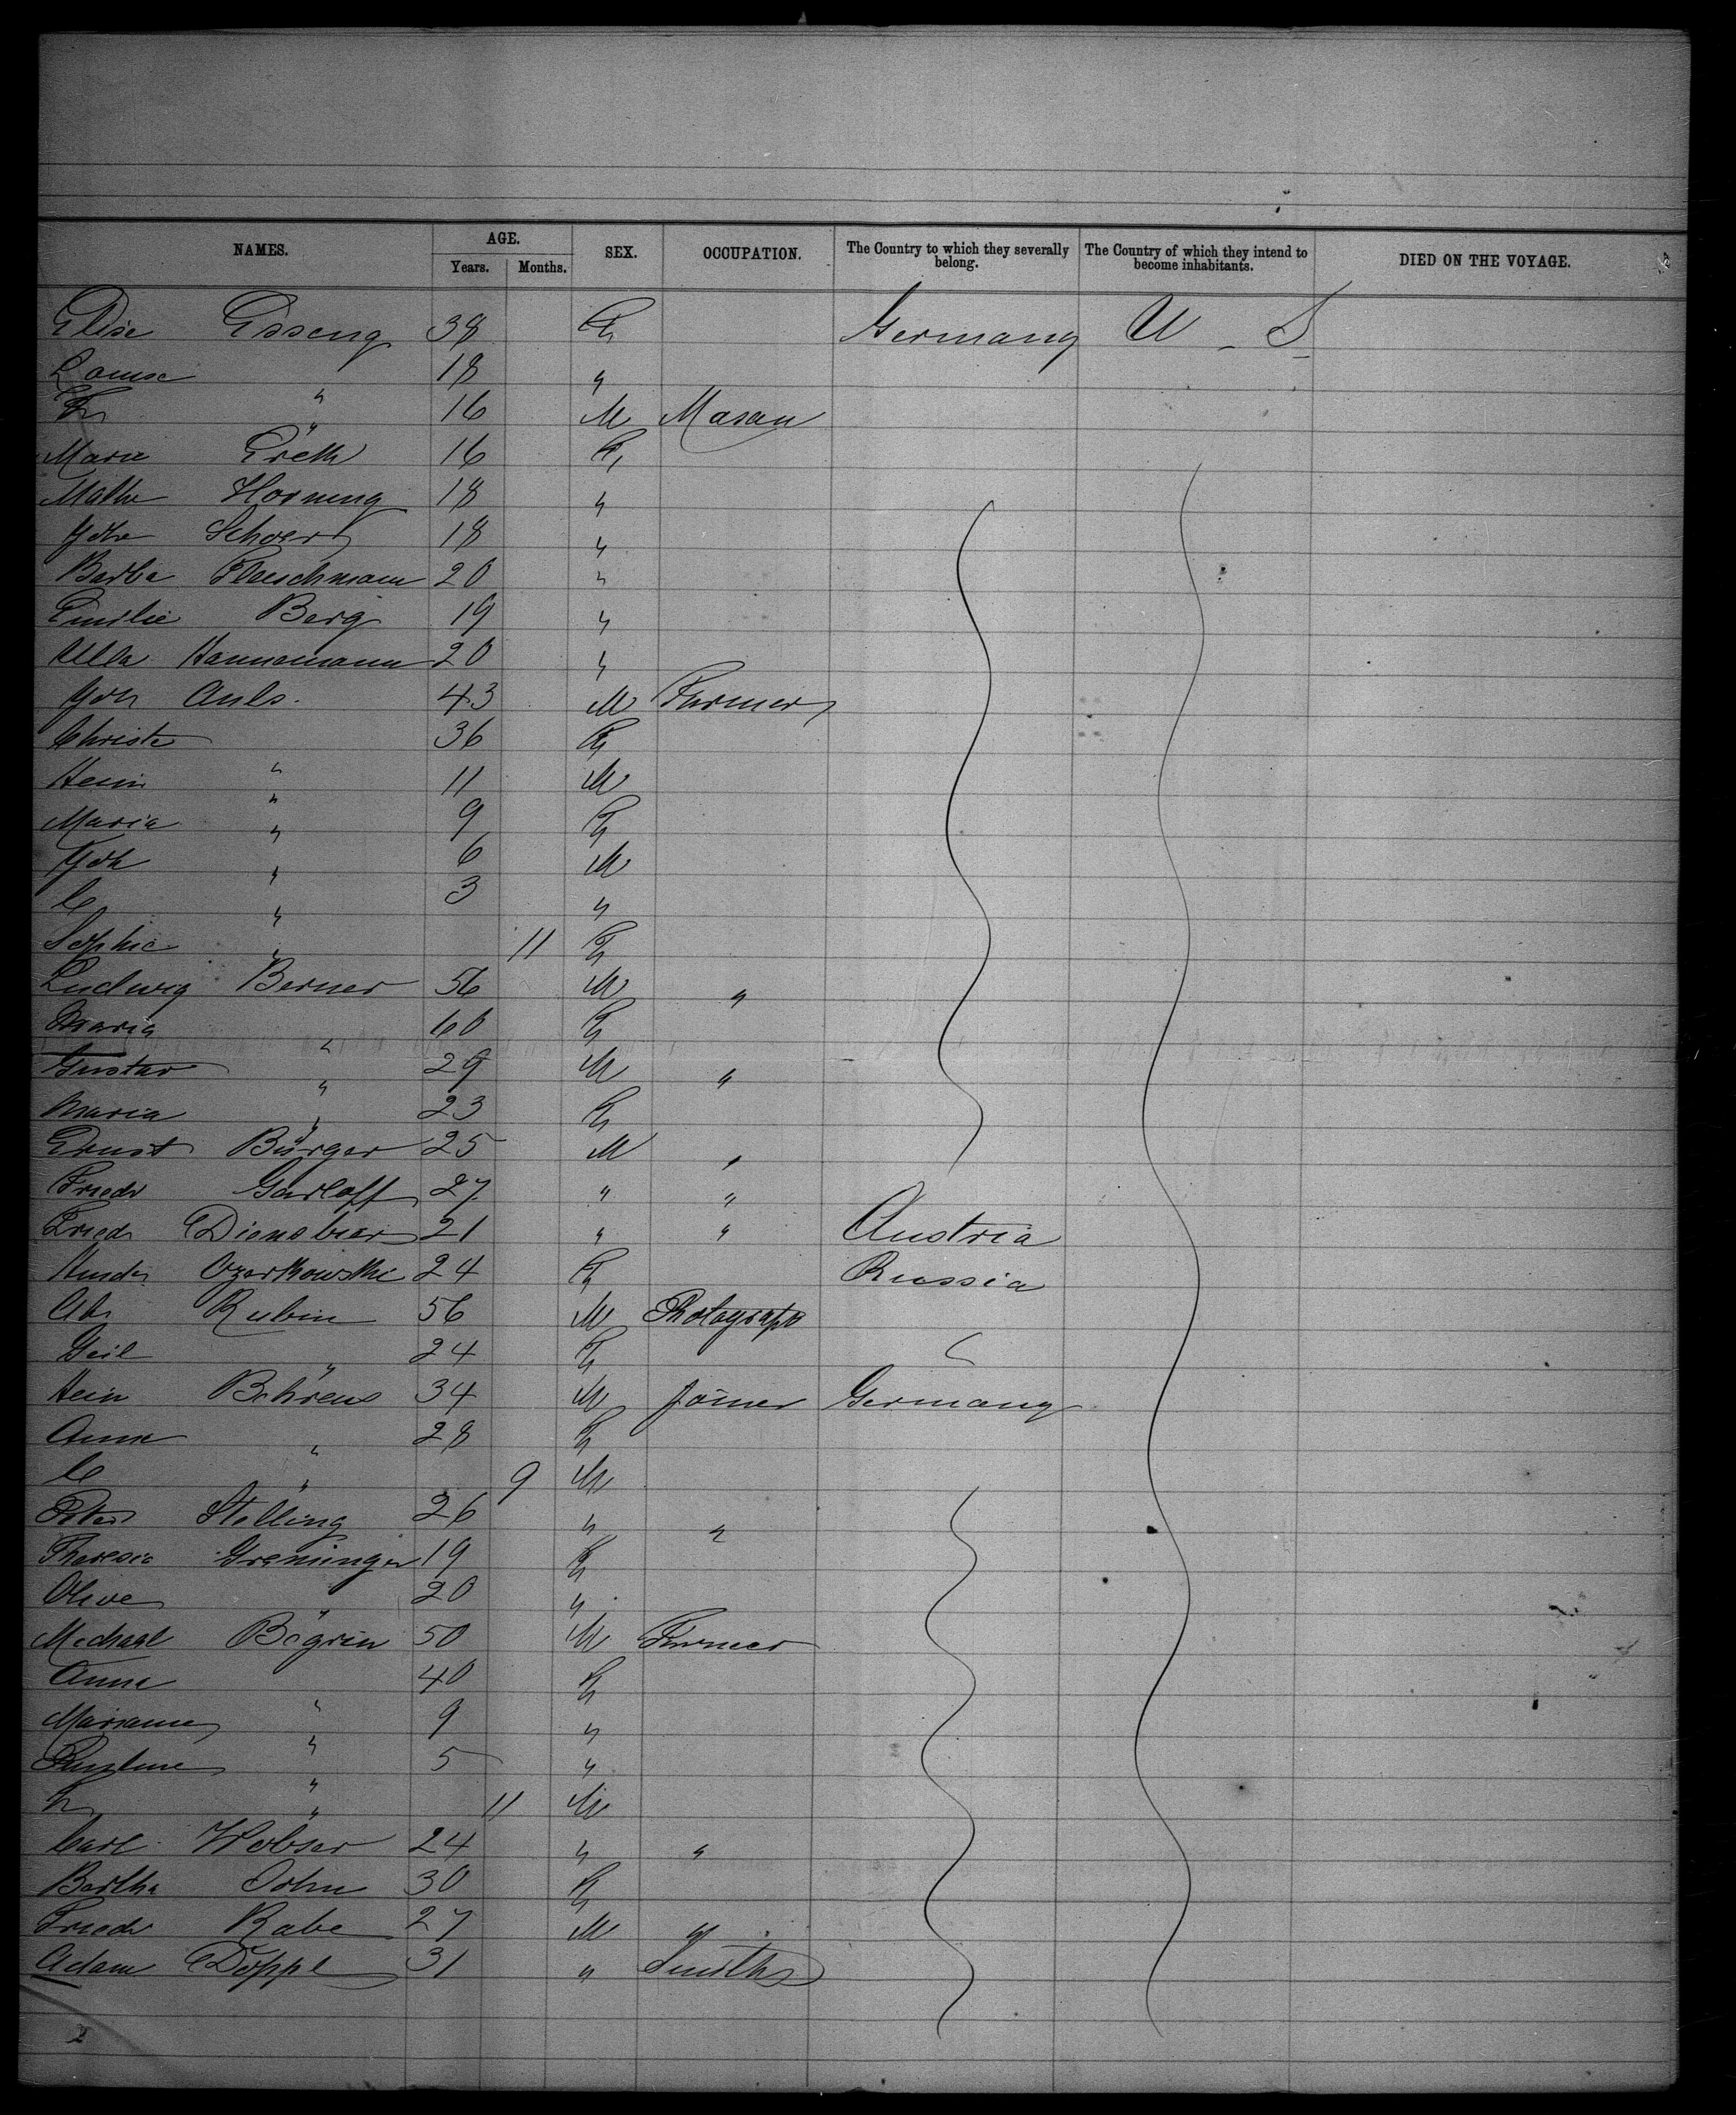 NAMES. AGE. SEX. OCCUPATION. The Country to which they severally belong. The Country of which they intend to become inhabitants. DIED ON THE VOYAGE.
Years. Months.
Elise Esseng 38 F Germany U - S
Louise " 18 "
Fr " 16 M Mason
Marie Greth 16 F
Mathe Horning 18 "
Joh 18 "
Barba Fleischmann 20 "
Emilie Berg 19 "
Ulla Hannemann 20 "
Joh Auls. 43 M Farmer
Christe " 36 F
Hein " 11 M
Maria " 9 F
Joh " 6 M
C " 3 "
Sophie " 11 F
Ludwig Berner 56 M "
Maria " 60 F
Gustav " 29 M "
Maria " 23 F
Ernst Bürger 25 M "
Friedr Garloff 27 " "
Fried Diensbier 21 " " Austria
Ozerkowski 24 F Russia
Ab Rubin 56 M Photograph
Geil " 24 F "
Hein Behrens 34 M Joiner Germany
Anna " 28 F
C " 9 M
Peter Stelling 26 " "
Theresia Greninger 19 F
Olive " 20 "
Michael Begrin 50 M Farmer
Anna " 40 F
Marianne " 9 "
Pauline " 5 "
" 11 M
Carl Wobser 24 " "
Bertha John 30 F
Friedr Rabe 27 M "
Adam Döppl 31 " Smith
2